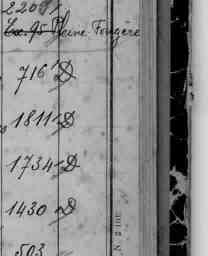 2209
Pleine Fougère
716 D
1811 D
1734 D
1430 D
503